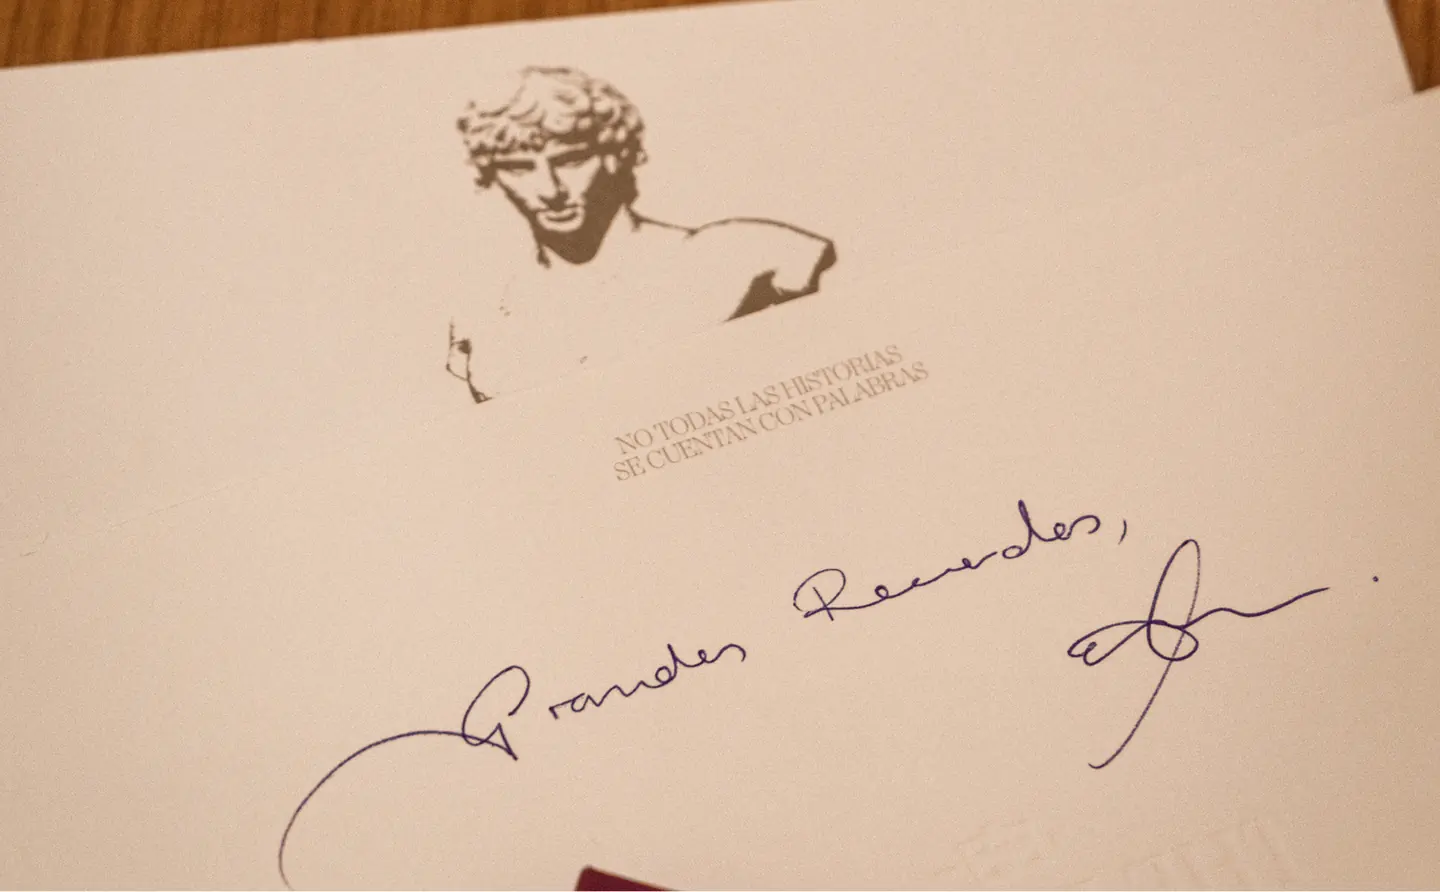 NO TODAS LAS HISTORIAS
SE CUENTAN CON PALABRAS
Grandes Recuerdos,